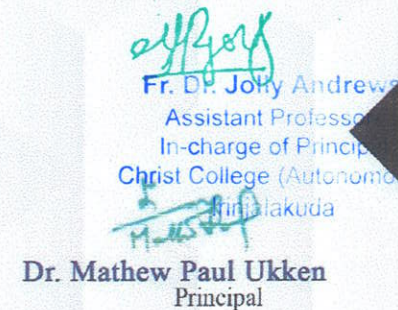 Fr. Dr. Jolly Andrews
Assistant Professo
In-charge of Princip
Christ College (Autonomo
Irinjalakuda
Dr. Mathew Paul Ukken
Principal